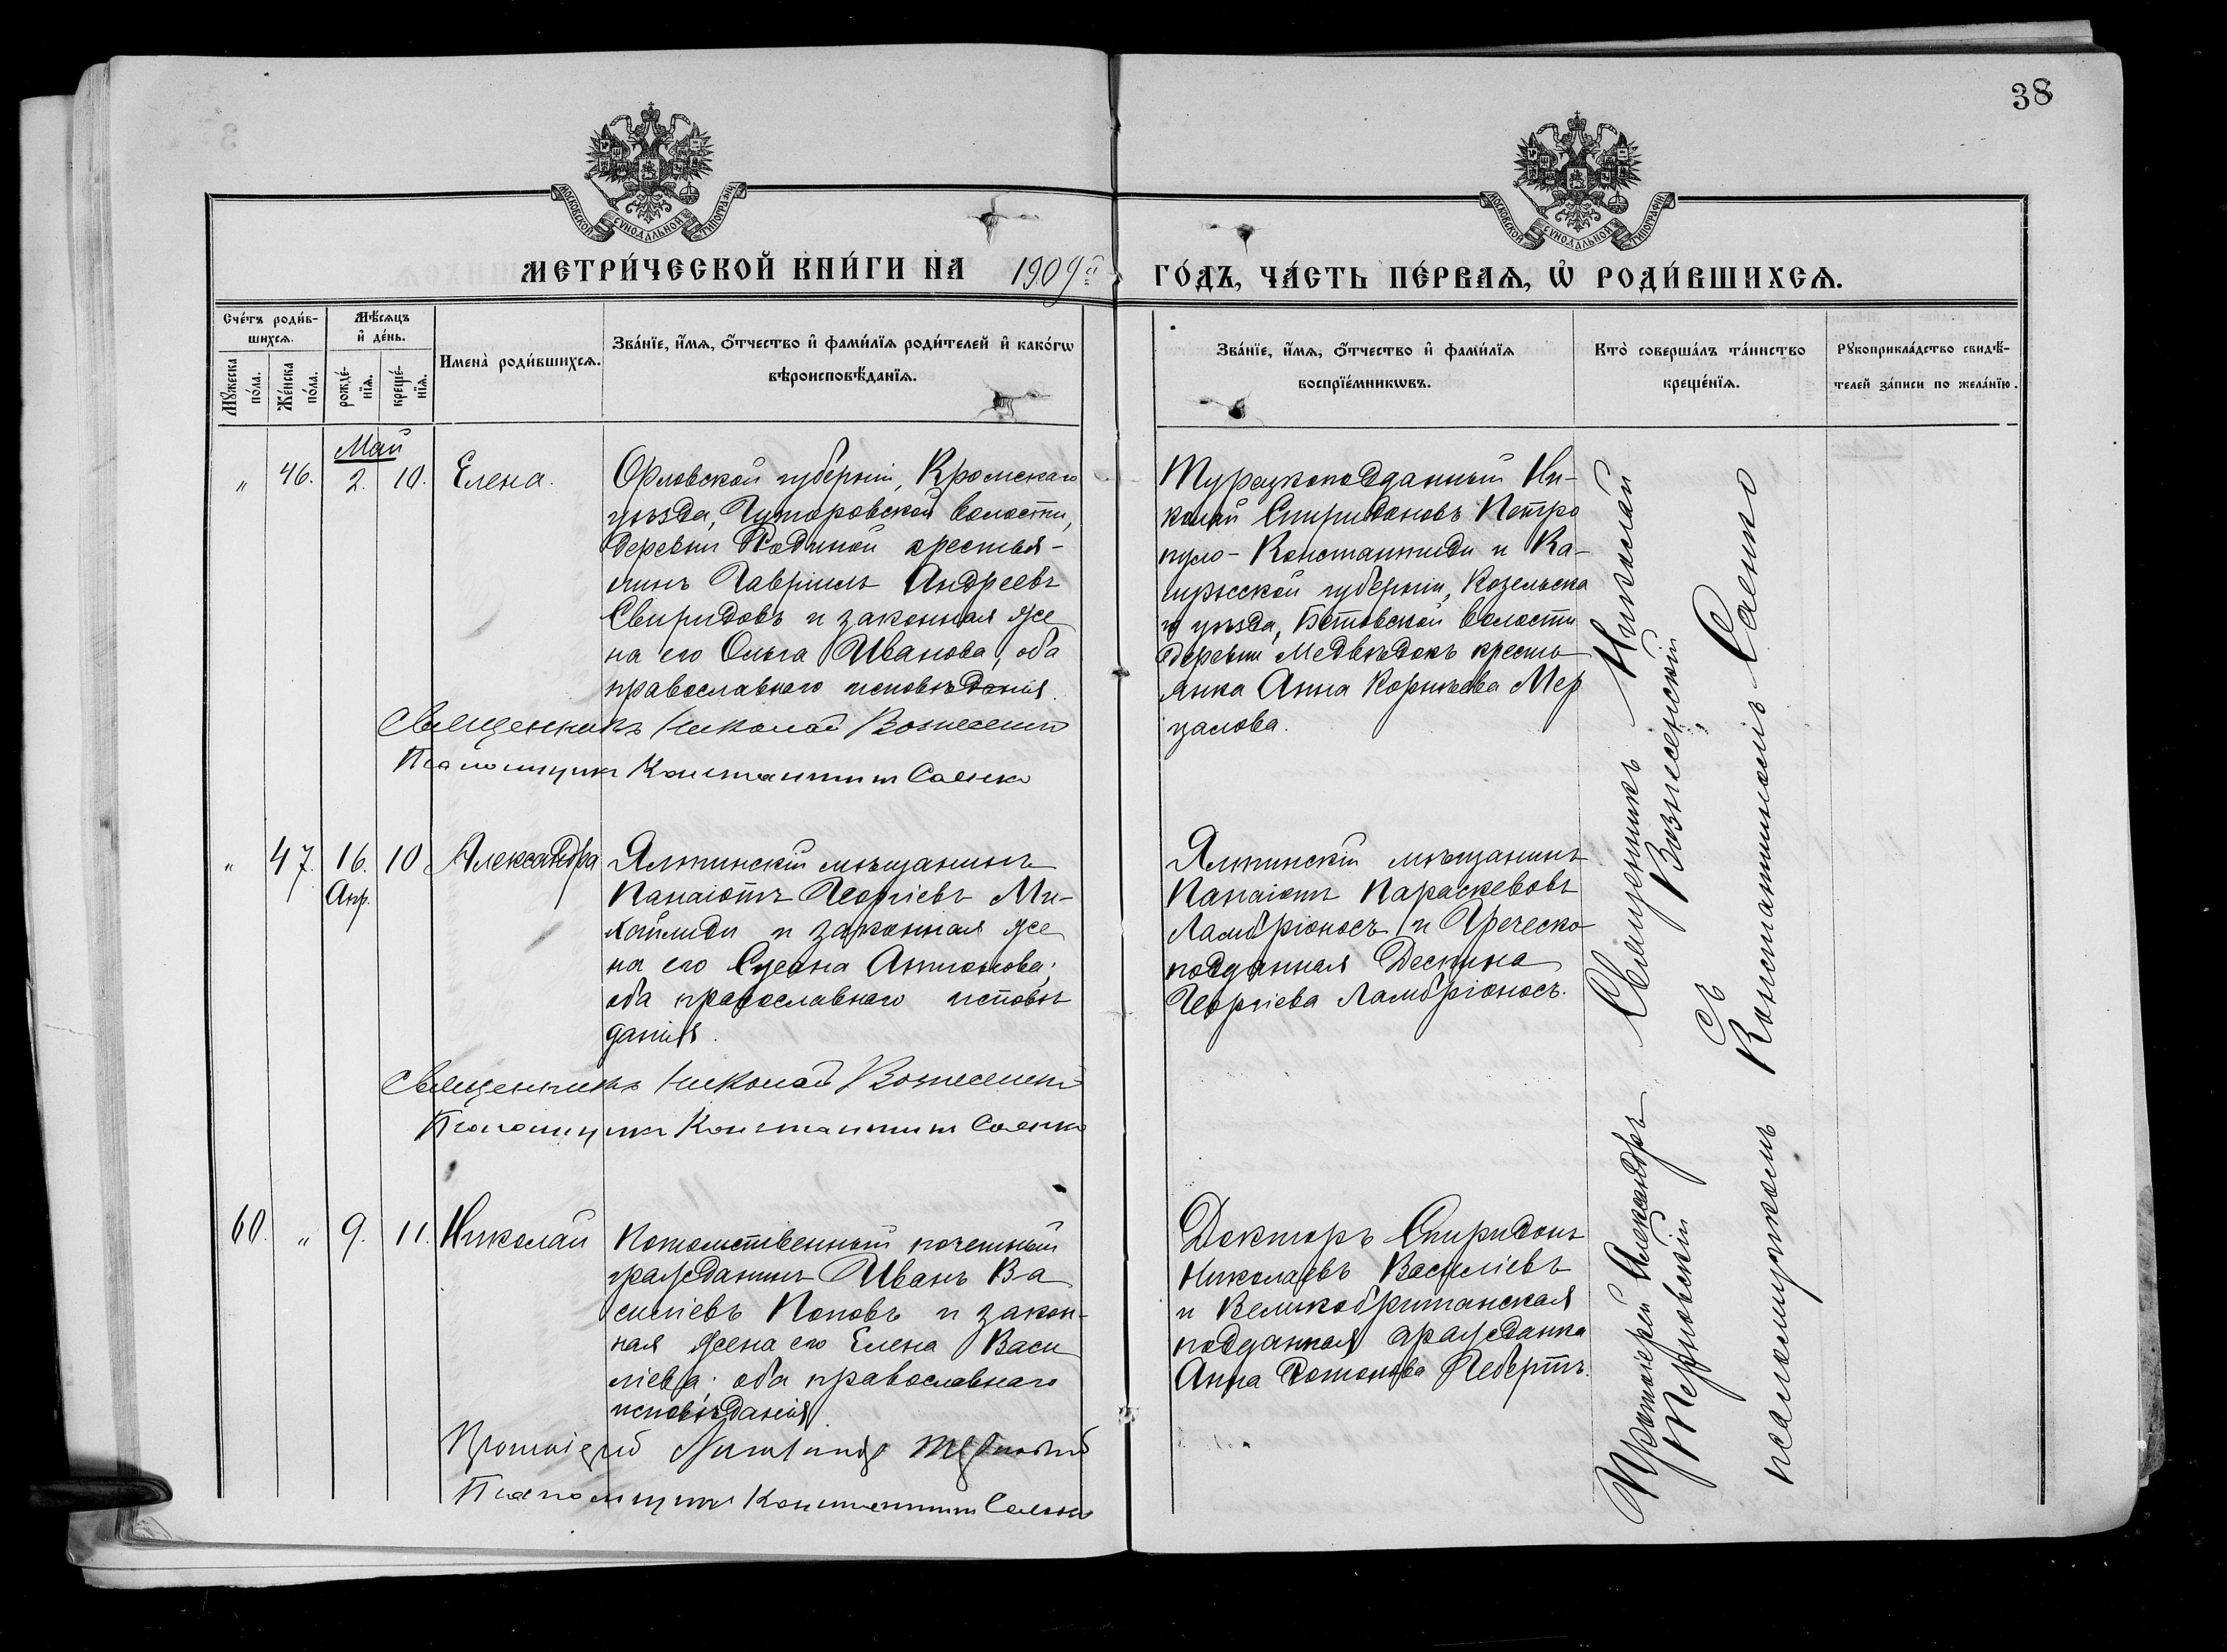 38
МОСКОВСКОЙ СУНОДАЛЬНОЙ ТИПОГРАФІИ
МОСКОВСКОЙ СУНОДАЛЬНОЙ ТИПОГРАФІИ
МЕТРИ́ЧЕСКОЙ КНИ́ГИ НА 1909й ГО́ДЪ, ЧА́СТЬ ПЕ́РВАѦ, Ѡ҆ РОДИ́ВШИХСѦ.
Сче́тъ роди́в-
шихсѧ.
Мꙋ́жеска по́ла.
Же́нска по́ла.
Мѣ́сѧцъ
и҆ де́нь.
рожде́-
нїѧ.
креще́-
нїѧ.
Имена̀ роди́вшихсѧ.
Зва́нїе, и҆́мѧ, ѻ҆́тчество и҆ фами́лїѧ роди́телей и҆ како́гѡ
вѣроисповѣ́данїѧ.
Зва́нїе, и҆́мѧ, ѻ҆́тчество и҆ фами́лїѧ
воспрїе́мникѡвъ.
Кто̀ соверша́лъ та́инство
креще́нїѧ.
Рꙋкоприкла́дство свидѣ́-
телей за́писи по жела́нїю.
Май
" 46. 2. 10. Елена.
Орловской губерніи, Кромскаго
уѣзда, Гуторовской волости,
деревни Родиной крестья-
нинъ Гавріилъ Андреевъ
Свиридовъ и законная же
на его Ольга Иванова, оба
православнаго исповѣданія.
Священникъ Николай Вознесенскій
Псаломщикъ Константинъ Саенко
Турецкоподданный Ни-
колай Спиридоновъ Петро
пуло-Константиди и Ка-
лужской губерніи, Козельска
го уѣзда, Бетовской волости
деревни Медвѣдокъ кресть
янка Анна Корнѣева Мер
цалова.
Священникъ Николай
Вознесенскій
съ
Константиномъ Саенко
" 47. 16. 10 Александра
Апр.
Ялтинскій мѣщанинъ
Панаіотъ Георгіевъ Ми-
хайлиди и законная же
на его Сусана Антонова;
оба православнаго исповѣ
данія.
Священникъ Николай Вознесенскій
Псаломщикъ Константинъ Саенко
Ялтинскій мѣщанинъ
Панаіотъ Параскевовъ
Ламбріоносъ и Греческо
подданная Деспина
Георгіева Ламбріоносъ.
60. " 9. 11. Николай
Потомственный почетный
гражданинъ Иванъ Ва
силіевъ Поповъ и закон-
ная жена его Елена Васи
ліева; оба православнаго
исповѣданія.
Протоіерей Александръ Терновскій
Псаломщикъ Константинъ Саенко
Докторъ Спиридонъ
Николаевъ Василіевъ
и Великобританская
подданная гражданка
Анна Гебертъ.
Протоіерей Александръ
Терновскій
псаломщикомъ